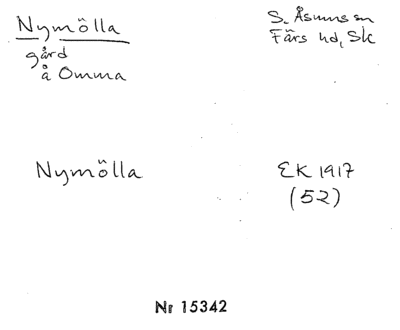 Nymölla
gård
å Omma
S. Åsum sn
Färs hd, Sk
Nymölla
EK 1917
(52)
Nr 15342